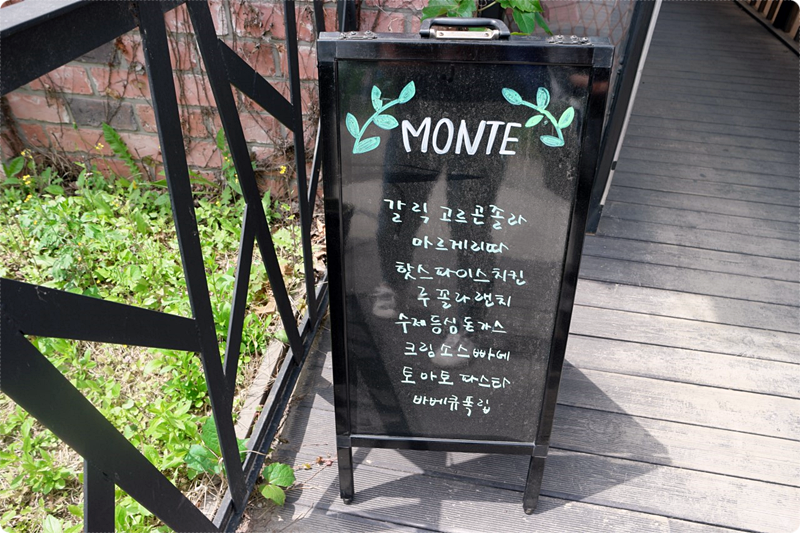 MONTE
갈릭 고르곤졸라
마르게리따
핫스파이스치킨
루꼴라랜치
수제등심돈까스
크림소스빠네
토마토파스타
바베큐폭립